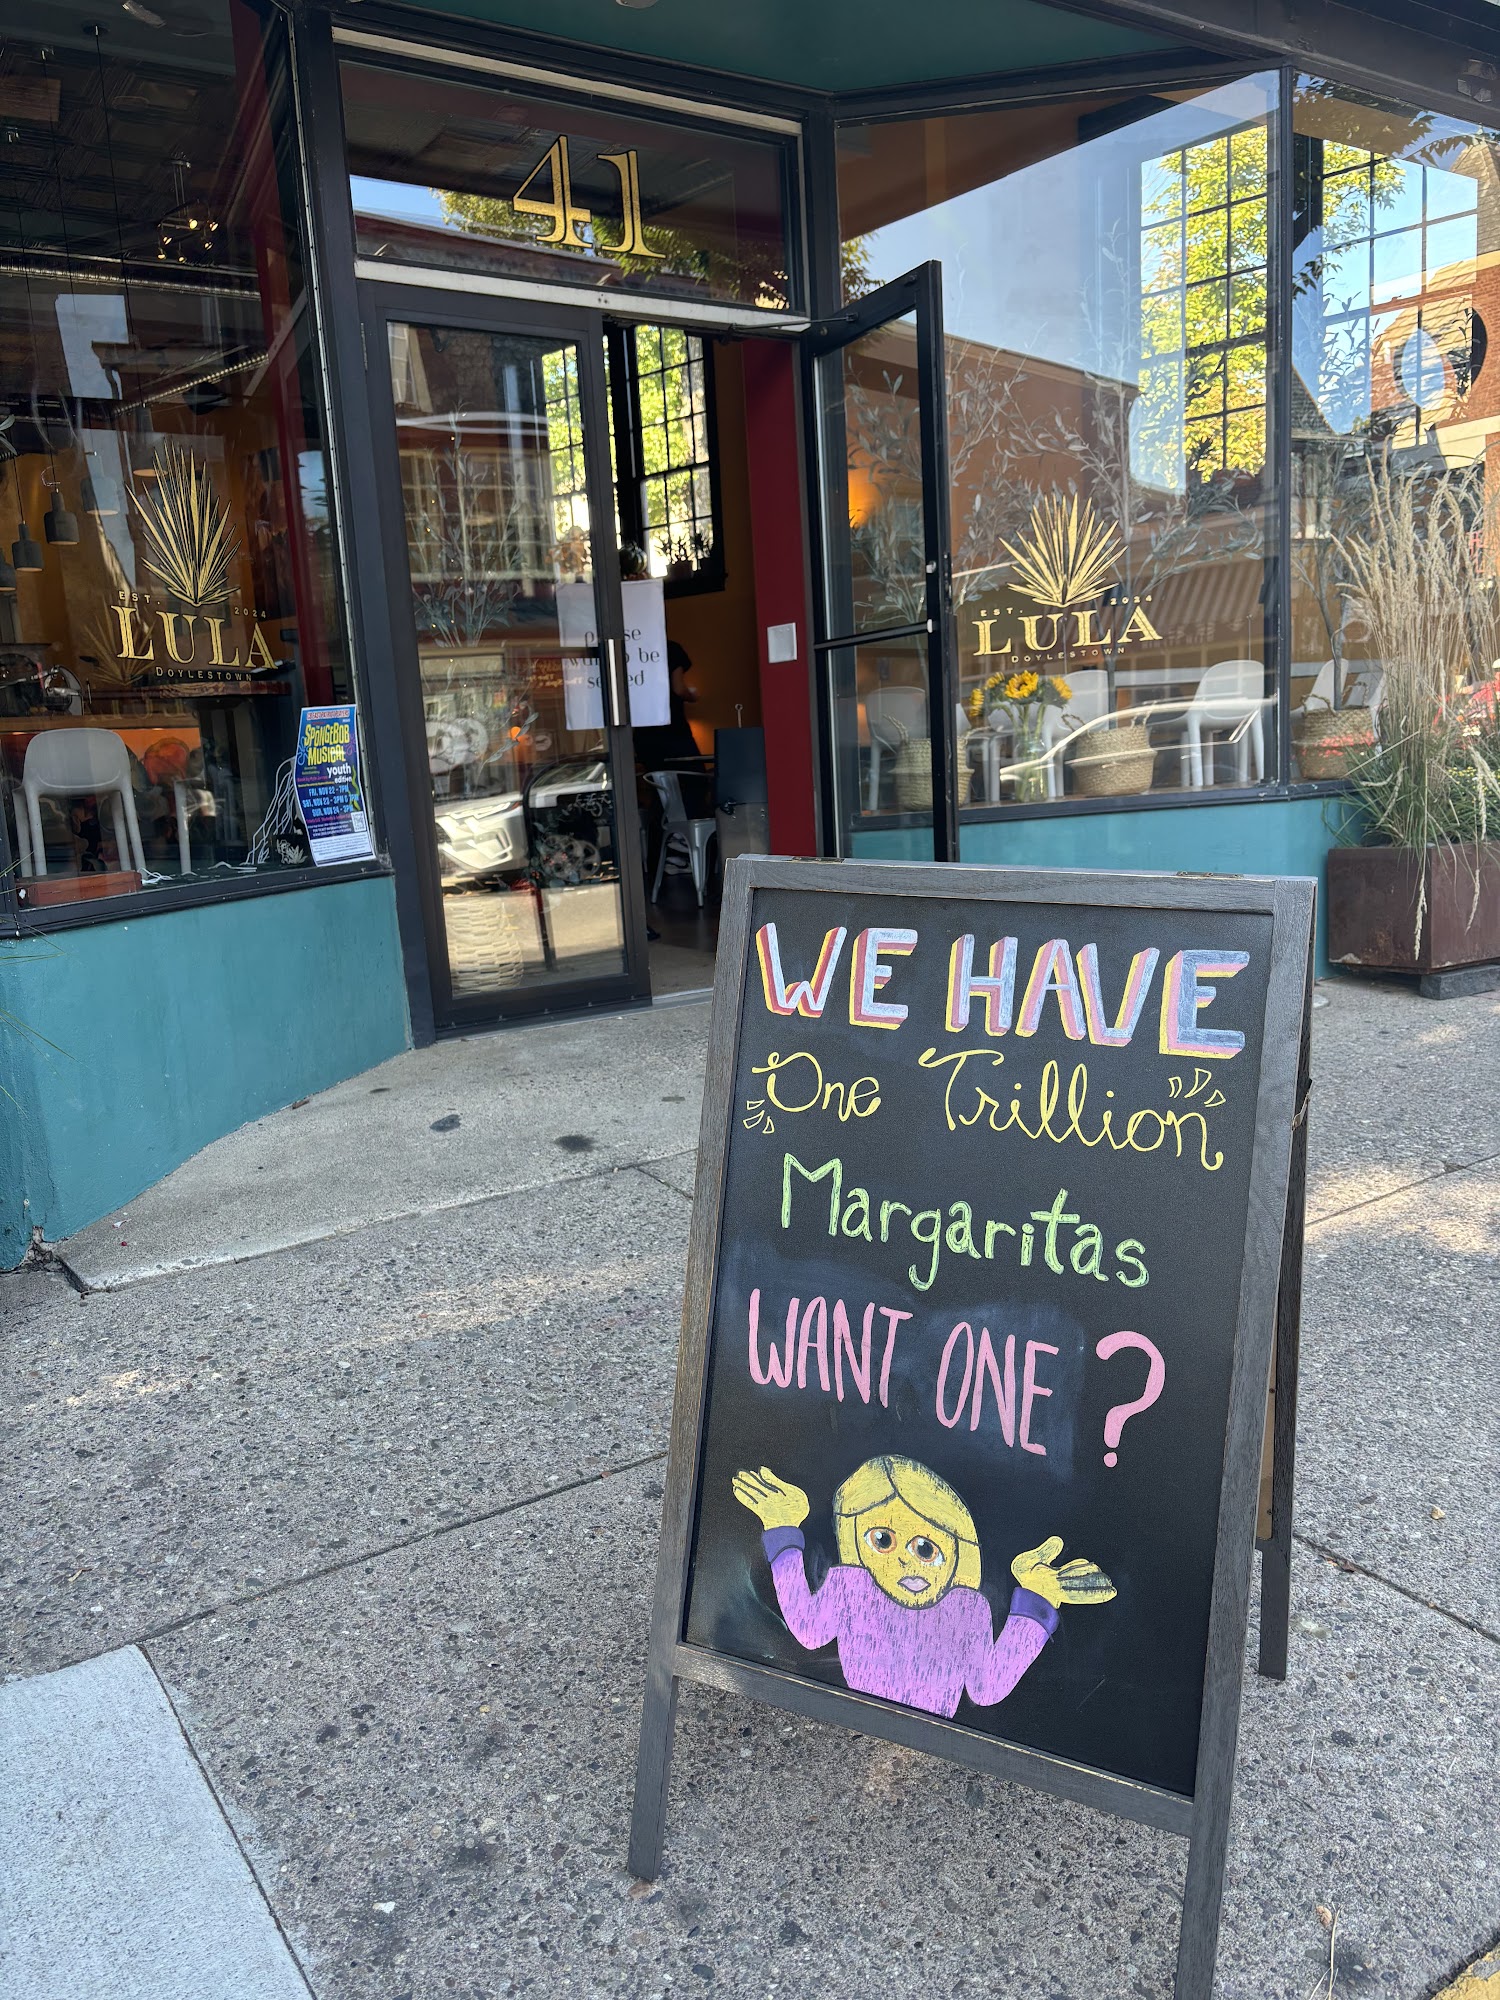 41
EST. 2024
LULA
DOYLESTOWN
EST. 2024
LULA
DOYLESTOWN
be
SPONGEBOB
MUSICAL
youth
edition
FRI, NOV 22 - 7PM
SAT, NOV 23 - 2PM & 7PM
SUN, NOV 24 - 2PM
WE HAVE
One Trillion
Margaritas
WANT ONE?